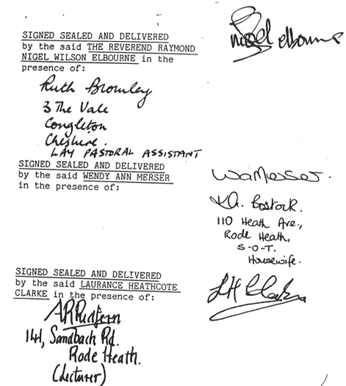 SIGNED SEALED AND DELIVERED
by the said THE REVEREND RAYMOND
NIGEL WILSON ELBOURNE in the
presence of:
Nigel Elbourne
Ruth Bromley
3 The Vale
Congleton
Cheshire.
LAY PASTORAL ASSISTANT
SIGNED SEALED AND DELIVERED
by the said WENDY ANN MERSER
in the presence of:
WAMerser.
K.A. Bostock.
110 Heath Ave.,
Rode Heath,
S-O-T.
Housewife.
SIGNED SEALED AND DELIVERED
by the said LAURANCE HEATHCOTE
CLARKE in the presence of:
LH Clarke
141, Sandbach Rd.
Rode Heath.
(Lecturer)